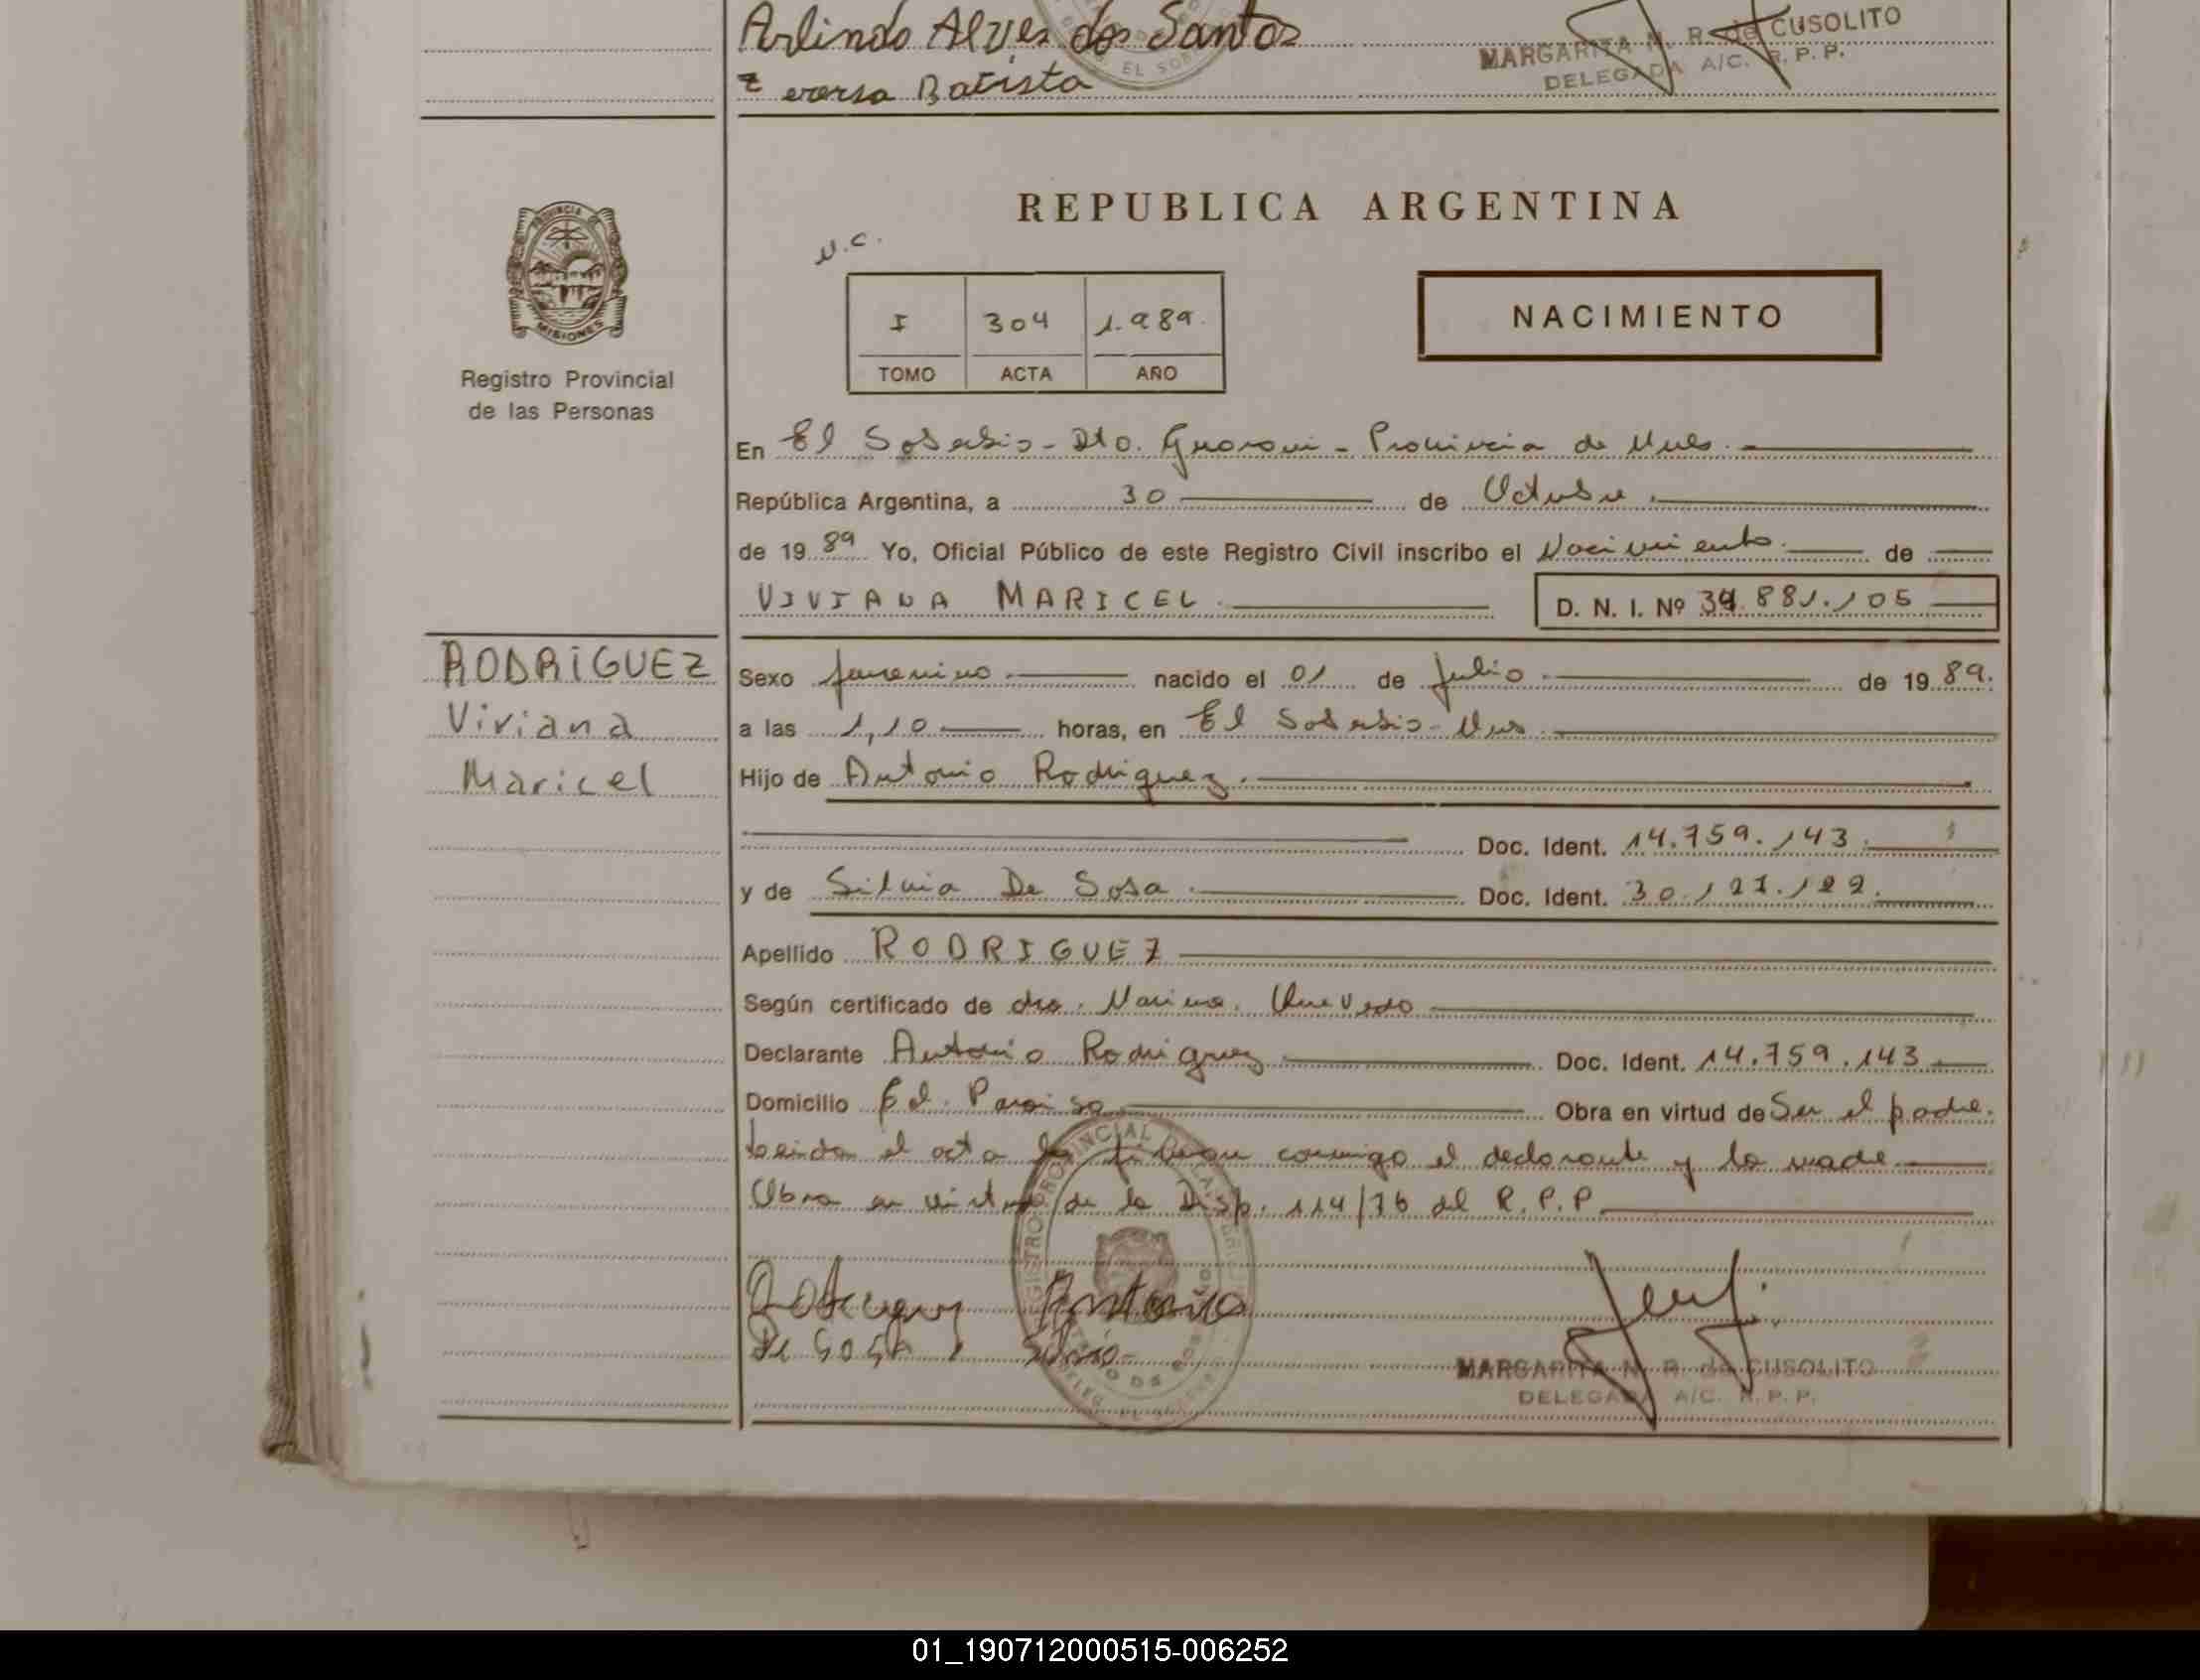 Arlindo Alves dos Santos
Batista
MARGARITA N. R. de CUSOLITO
DELEGADA A/C. R. P. P.
EL SOB
REPUBLICA ARGENTINA
PROVINCIA DE
MISIONES
Registro Provincial
de las Personas
N.C.
I 304 1.989.
TOMO ACTA AÑO
NACIMIENTO
En El Soberbio - Dto. Guarani - Provincia de Mnes.
República Argentina, a 30 de Octubre
de 1989 Yo, Oficial Público de este Registro Civil inscribo el Nacimiento de
VIVIANA MARICEL D. N. I. Nº 34.881.105
RODRIGUEZ
Viviana
Maricel
Sexo femenino nacido el 01 de Julio de 1989.
a las 1,10 horas, en El Soberbio - Mnes
Hijo de Antonio Rodriguez.
Doc. Ident. 14.759.143
y de Silvia De Sosa Doc. Ident. 30.127.122.
Apellido RODRIGUEZ
Según certificado de dra.
Declarante Antonio Rodriguez Doc. Ident. 14.759.143
Domicilio El Paraiso Obra en virtud de Ser el padre.
Leida el acta la firman conmigo el declarante y la madre
Obra en virtud de la Disp. 114/76 del R.P.P
Antonio
De Sosa Silvia
MARGARITA N. R. de CUSOLITO
DELEGADA A/C. R. P. P.
01_190712000515-006252